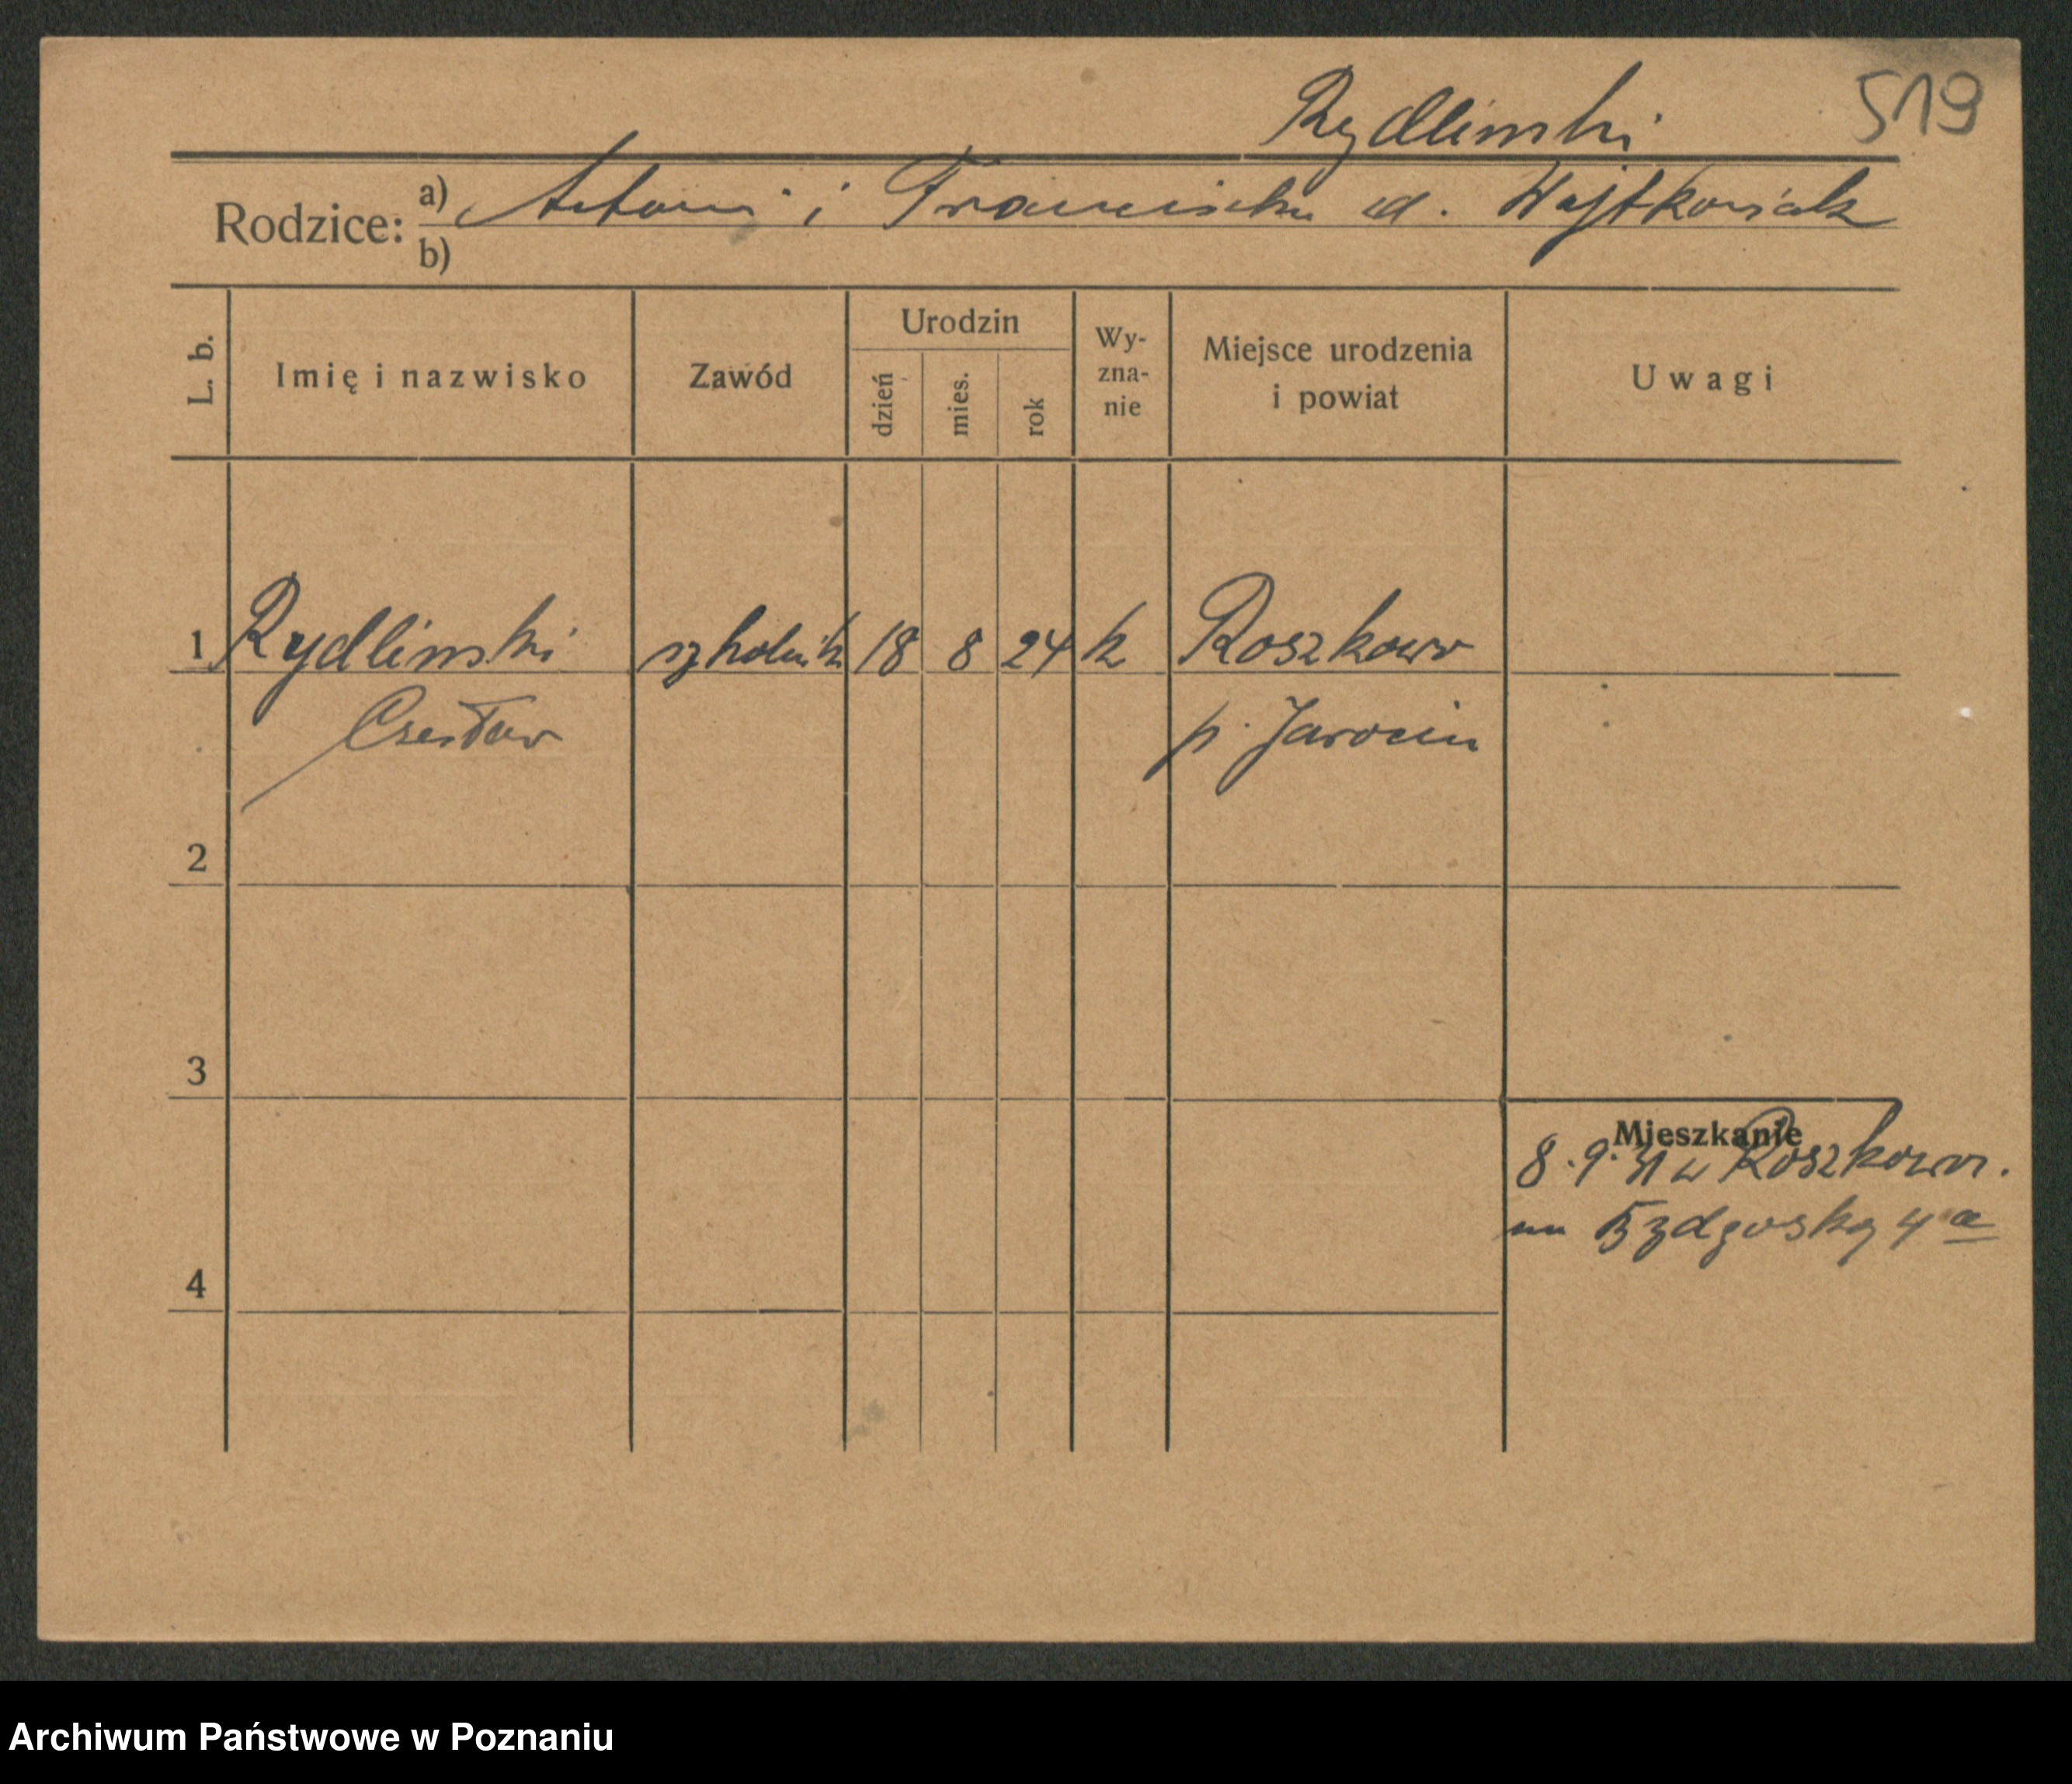 519
Rydlinski
Rodzice: a) Antoni i Franciszka d. Wojtkowiak
b)
L. b.
Imię i nazwisko
Zawód
Urodzin
dzień
mies.
rok
Wy-
zna-
nie
Miejsce urodzenia
i powiat
Uwagi
1 Rydlinski szkolnik 18 8 24 k Roszkowo
Czesław p. Jarocin
2
3
4
Mieszkanie
8.9. w Roszkowo.
na Bydgoską 4a
Archiwum Państwowe w Poznaniu